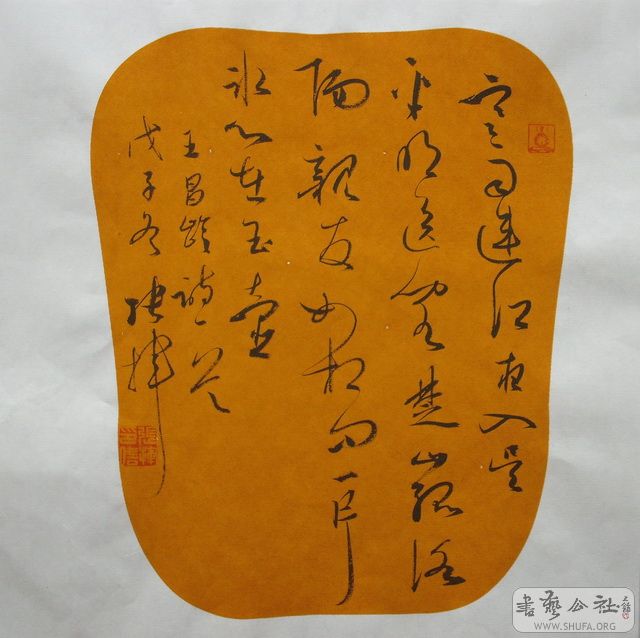 寒雨連江夜入吳
平明送客楚山孤洛
陽親友如相問一片
冰心在玉壺
王昌齡詩一首
戊子冬張
書藝公社
WWW.SHUFA.ORG